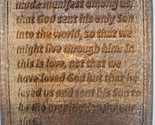 made manifest among us,
that God sent his only Son
into the world, so that we
might live through him. In
this is love, not that we
have loved God but that he
loved us and sent his Son to
be the propitiation for our